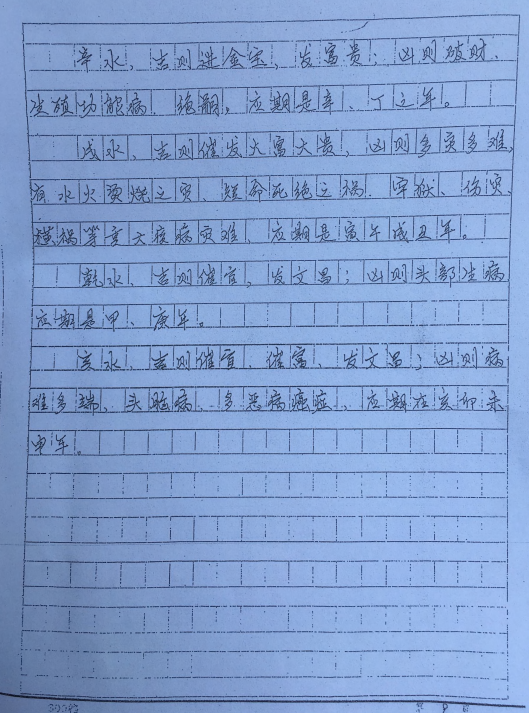 辛水、吉则进金宝、发富贵；凶则破财、
生殖功能病、绝嗣，应期是辛、丁之年。
戌水、吉则催发大富大贵，凶则多灾多难，
有水火烫烧之灾、短命死绝之祸、牢狱、伤灾、
横祸等重大疾病灾难、应期是寅午戌丑年。
乾水、吉则催官、发文昌；凶则头部生病
应期是甲、庚年。
亥水、吉则催官、催富、发文昌；凶则病
难多端、头脑病、多恶病癌症、应期在亥卯未
申年。